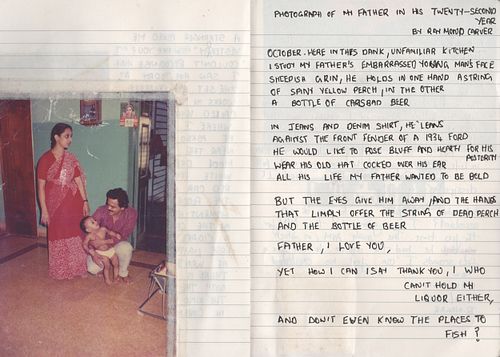 PHOTOGRAPH OF MY FATHER IN HIS TWENTY-SECOND
YEAR
BY RAYMOND CARVER
OCTOBER. HERE IN THIS DANK, UNFAMILIAR KITCHEN
I STUDY MY FATHER'S EMBARRASSED YOUNG MAN'S FACE
SHEEPISH GRIN, HE HOLDS IN ONE HAND A STRING
OF SPINY YELLOW PERCH, IN THE OTHER
A BOTTLE OF CARSBAD BEER
IN JEANS AND DENIM SHIRT, HE LEANS
AGAINST THE FRONT FENDER OF A 1934 FORD
HE WOULD LIKE TO POSE BLUFF AND HEARTY FOR HIS
POSTERITY
WEAR HIS OLD HAT COCKED OVER HIS EAR
ALL HIS LIFE MY FATHER WANTED TO BE BOLD
BUT THE EYES GIVE HIM AWAY, AND THE HANDS
THAT LIMPLY OFFER THE STRING OF DEAD PERCH
AND THE BOTTLE OF BEER
FATHER, I LOVE YOU,
YET HOW I CAN I SAY THANK YOU, I WHO
CAN'T HOLD MY
LIQUOR EITHER,
AND DON'T EVEN KNOW THE PLACES TO
FISH?